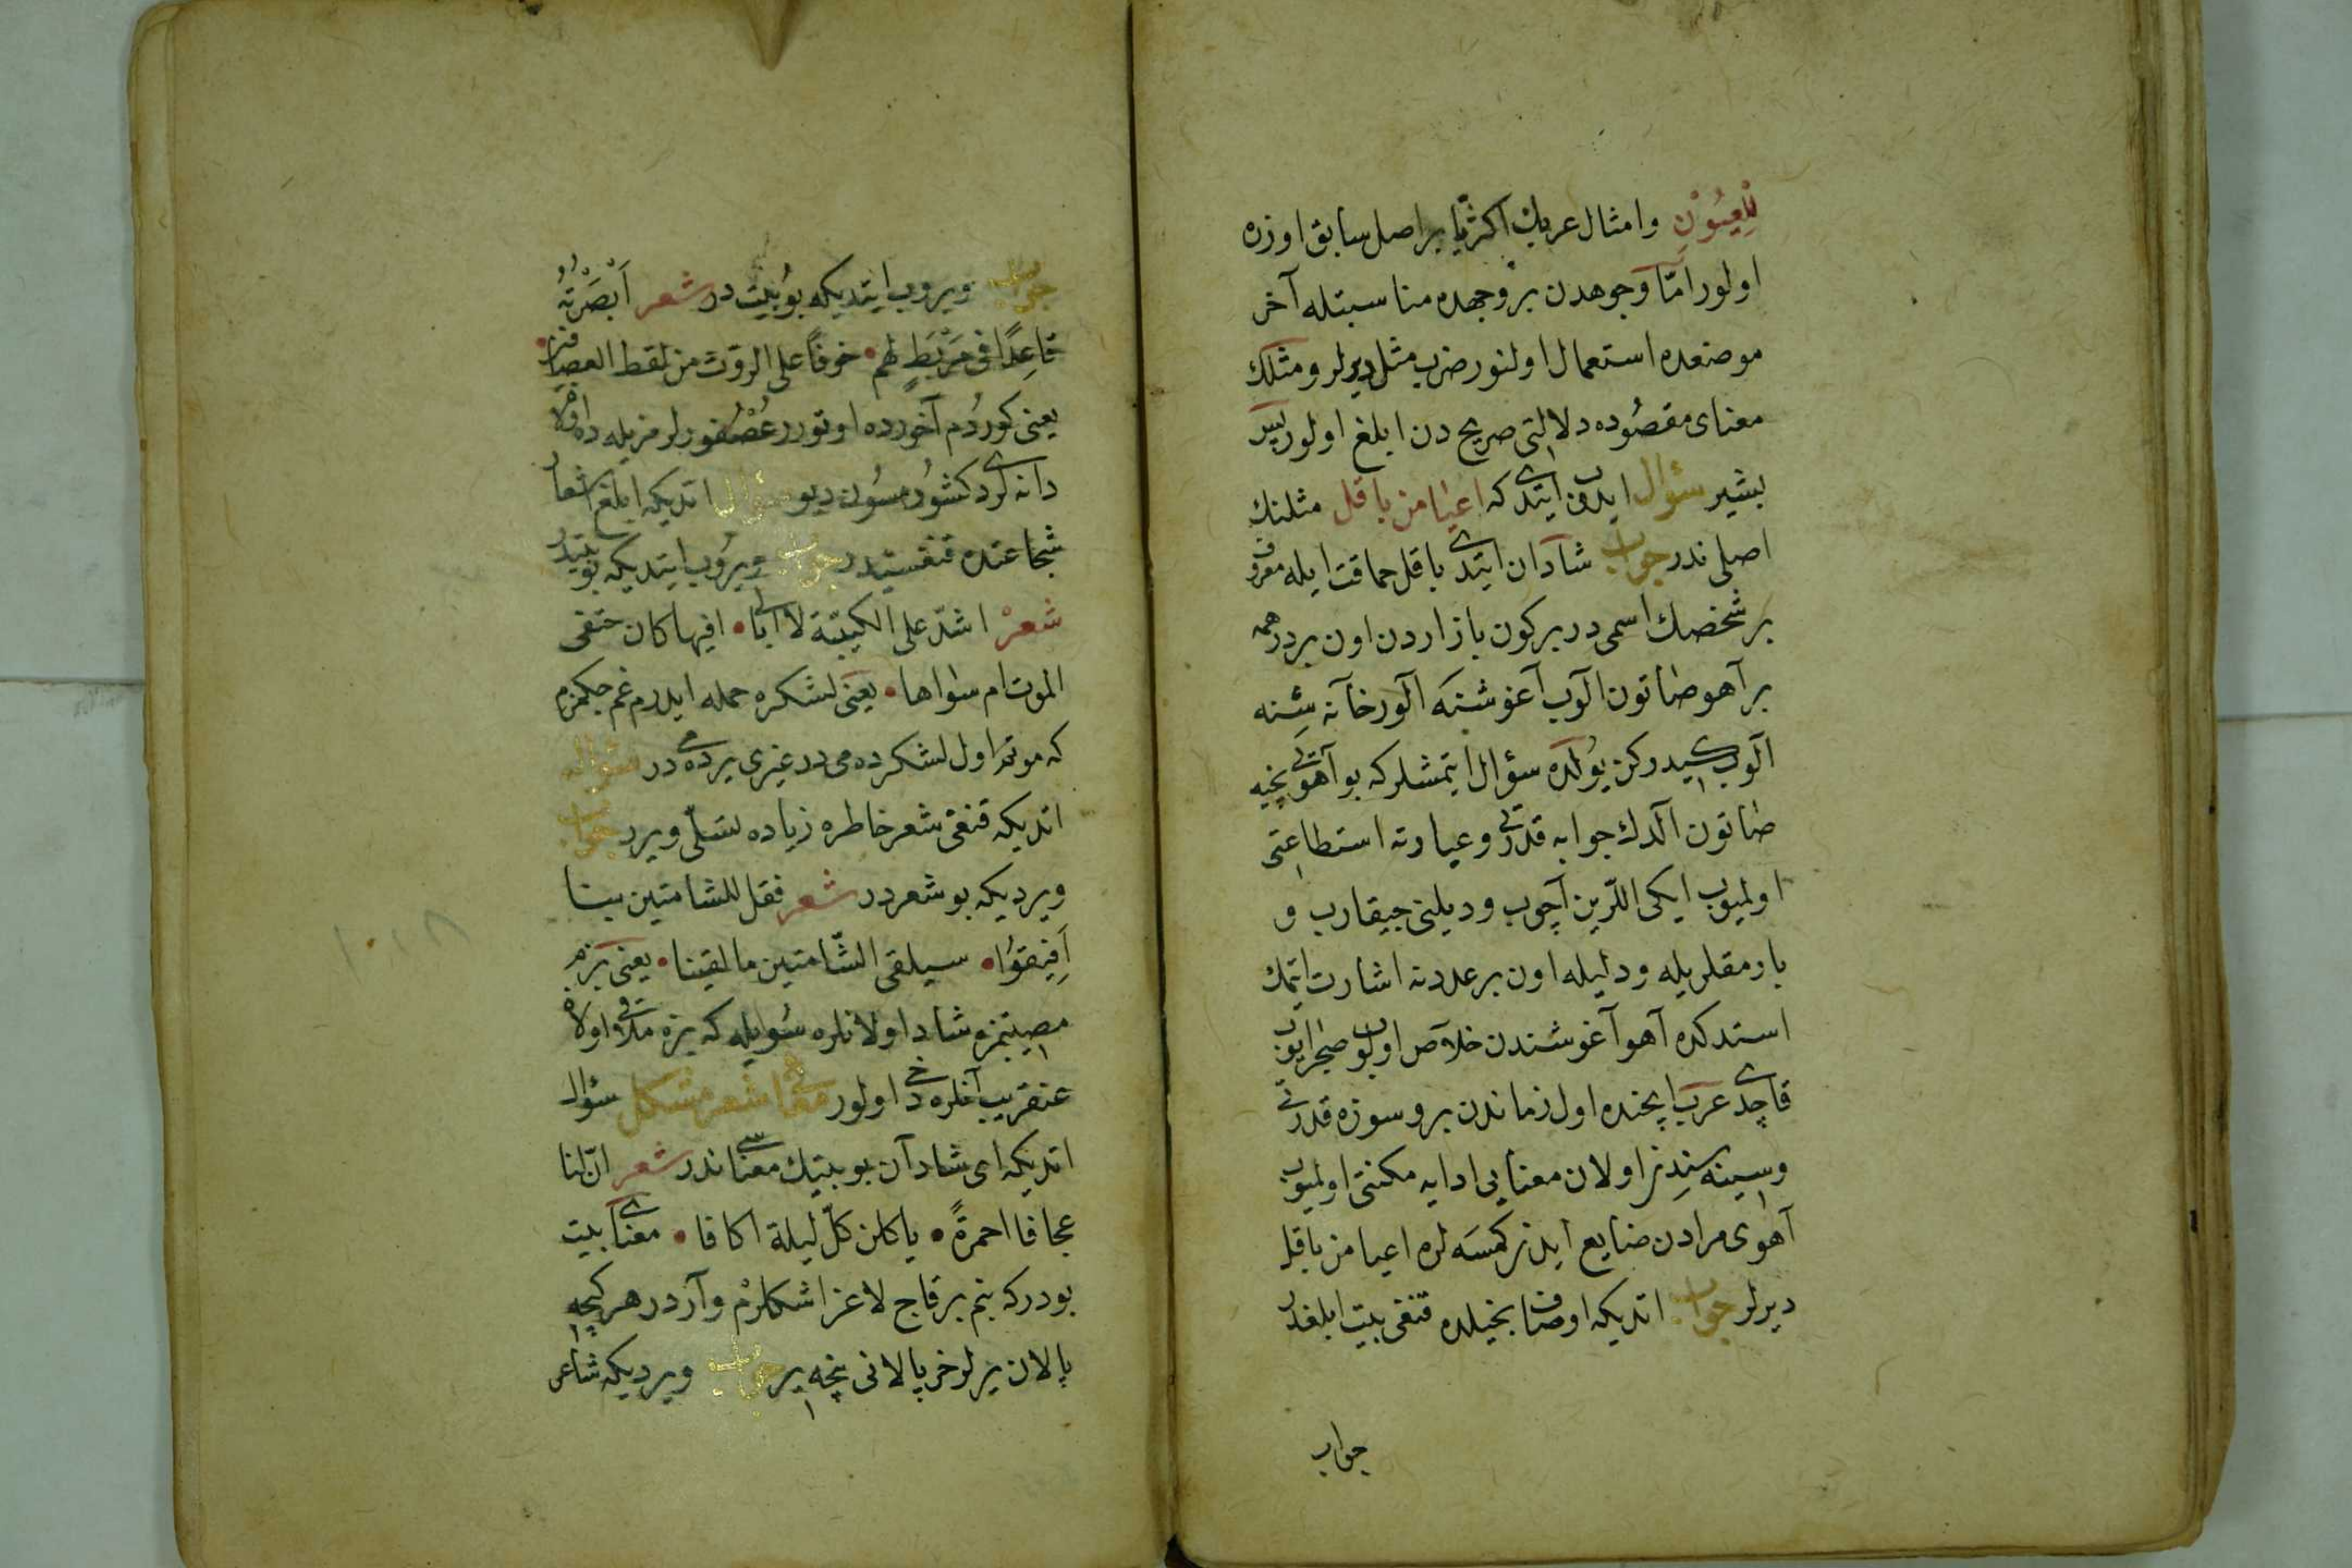 لِلْعِيُوْنِ وامثال عربك اكثريا بر اصل سابق اوزره
اولور امّا وجوهدن بر وجهده مناسبتله آخر
موضعده استعمال اولنور ضرب مثل ديرلر ومثلك
معناى مقصوده دلالتى صريح دن ابلغ اولور پس
بشير سؤال ايدوب ايتدى كه اعيا من باقل مثلنك
اصلى ندر جواب شادان ايتدى باقل حماقت ايله معروف
بر شخصك اسمى در بر كون بازاردن اون بر درهمه
بر آهو صاتون آلوب آغوشنه آلور خانه سنه
آلوب كيدركن يولده سؤال ايتمشلر كه بو آهوى نچيه
صاتون آلدك جوابه قدرتى وعبارته استطاعتى
اولميوب ايكى اللرين آچوب وديلنى چيقارب و
بارمقلريله وديليله اون بر عددنه اشارت ايتمك
استدكده آهو آغوشندن خلاص اولوب صچرايوب
قاچدى عرب ايچنده اول زماندن برو سوزه قدرتى
وسينه سنده اولان معنايى ادايه مكنتى اولميوب
آهوى مرادن ضايع ايدن كمسه لره اعيا من باقل
ديرلر جواب اتديكه اوصاف بخيلده قنغى بيت ابلغدر
جواب
جواب ويروب ايتديكه بو بيت در شعر اَبْصَرْتُهُ
قاعِدًا فى مَرْبَطٍ لهم • خوفاً على الروث من لقط العصافير •
يعنى كوردم آخورده اوتورر عُصْفورلر مزبله ده اولان
دانه لرى دكشورمسون ديو سؤال اتديكه ابلغ اشعار
شجاعتده قنغسيدر جواب ويروب ايتديكه بو بيتدر
شعر اشدّ على الكتيبة لا ابالى • افيها كان حتفى
الموت ام سواها • يعنى لشكره حمله ايدرم غم چكمزم
كه موتم اول لشكرده مى در غيرى يرده مى در سؤال
اتديكه قنغى شعر خاطره زياده تسلّى ويرر جواب
ويرديكه بو شعردر شعر فقل للشامتين بينا
اَفِيقُوا • سيلقى الشّامتين ما لقينا • يعنى بزم
مصيبتمزه شاد اولانلره سويله كه بزه ملاقى اولان
عنقريب آنلره دخى اولور معماى شعر مشكل سؤال
اتديكه اى شادان بو بيتك معناسى ندر شعر انّ لنا
عجافا احمرةً • ياكلن كلّ ليلة اكافا • معناى بيت
بودر كه بنم بر قاچ لاغر اشكلرم واردر هر كيچه
پالان يرلر خر پالانى نيچه ير جواب ويرديكه شاعر